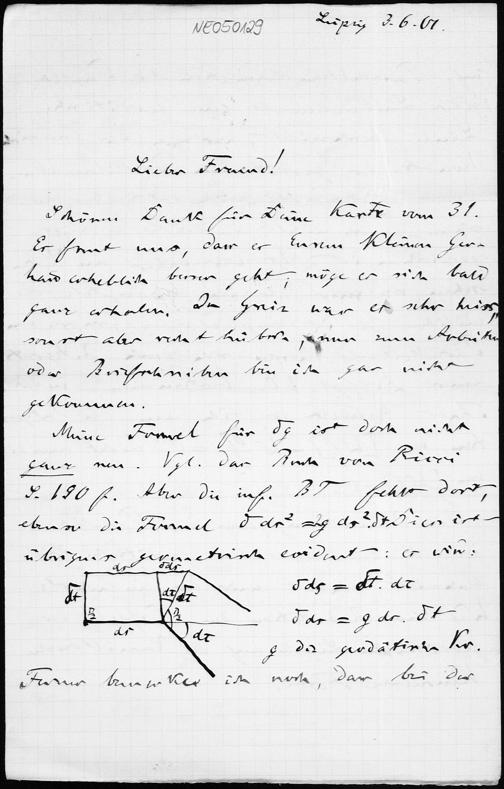 NE050129
Leipzig 3.6.01.
Lieber Freund!
Schönen Dank für Deine Karte vom 31.
Es freut uns, dass es Eurem kleinen Ger-
hard erheblich besser geht, möge er sich bald
ganz erholen. In Greiz war es sehr heiss,
sonst aber recht hübsch, nur zum Arbeiten
oder Briefschreiben bin ich gar nicht
gekommen.
Meine Formel für δg ist doch nicht
ganz neu. Vgl. das Buch von Ricci
S. 190 f. Aber die inf. BT fehlt dort,
ebenso die Formel δ ds² = 2g ds². δt. Dies ist
übrigens geometrisch evident: es wird:
ds δds
δt dτ δt
π/2 π/2
ds dτ
δds = δt. dτ
δds = g ds. δt
g die geodätische Kr.
Ferner bemerke ich noch, dass bei der